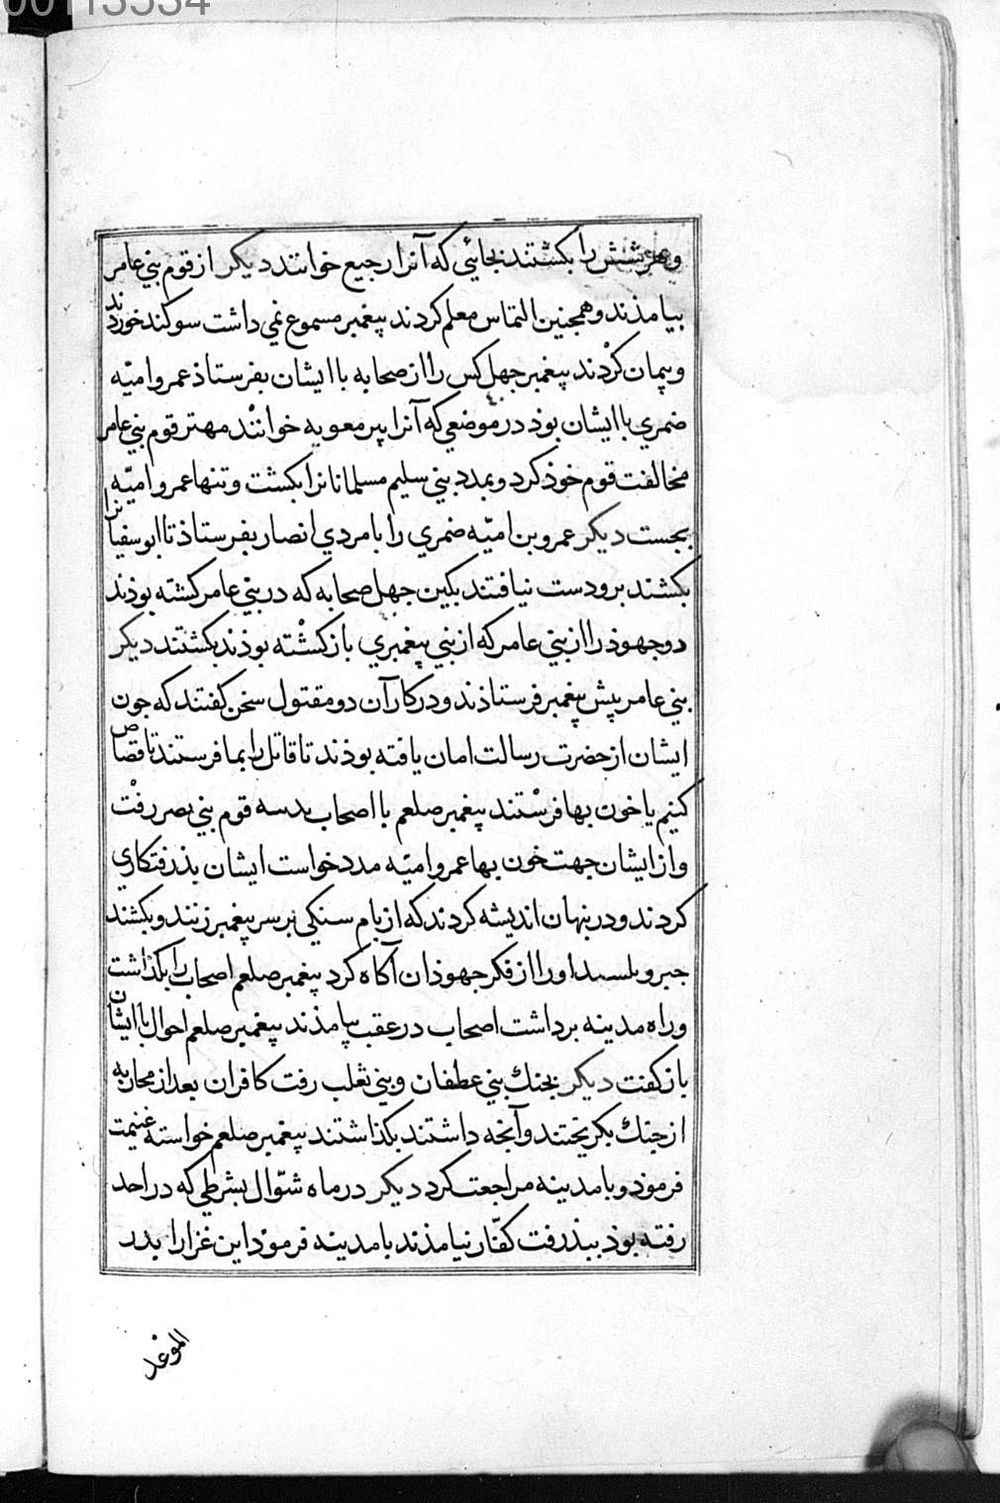 00113534
و هر شش را بكشتند بجائي كه آنرا رجيع خوانند ديكر از قوم بني عامر
بيامذند و همجنين التماس معلم كردند پيغمبر مسموع نمي داشت سوكند خوردند
و پيمان كردند پيغمبر جهل كس را از صحابه با ايشان بفرستاذ عمرو اميّه
ضمري با ايشان بوذ در موضعي كه آنرا بير معويه خوانند مهتر قوم بني عامر
مخالفت قوم خوذ كرد و بمدد بني سليم مسلمانانرا بكشت و تنها عمرو اميّه
بجست ديكر عمرو بن اميّه ضمري را با مردي انصار بفرستاذ تا ابو سفيانرا
بكشند برو دست نيافتند بكين جهل صحابه كه در بني عامر كشته بوذند
دو جهوذ را از بني عامر كه از بني پيغمبري باز كشته بوذند بكشتند ديكر
بني عامر پيش پيغمبر فرستاذند و در كار آن دو مقتول سخن كفتند كه جون
ايشان از حضرت رسالت امان يافته بوذند تا قاتل را بما فرستند تا قصاص
كنيم يا خون بها فرستند پيغمبر صلعم با اصحاب بدسه قوم بني نصر رفت
و از ايشان جهت خون بها عمرو اميّه مدد خواست ايشان بذرفتكاري
كردند و در بنهان انديشه كردند كه از بام سنكي بر سر پيغمبر زنند و بكشند
جبرويلسيد او را از فكر جهوذان آكاه كرد پيغمبر صلعم اصحاب را بكذاشت
و راه مدينه برداشت اصحاب در عقب بيامذند پيغمبر صلعم احوال با ايشان
باز كفت ديكر بجنك بني عطفان و بني ثغلب رفت كافران بعد از محاربه
از جنك بكريختند و آنجه داشتند بكذاشتند پيغمبر صلعم خواسته غنيمت
فرموذ و با مدينه مراجعت كرد ديكر در ماه شوّال بشرطي كه در احد
رفته بوذ ببذر رفت كفّار نيامذند با مدينه فرموذ اين غزا را بدر
الموعد